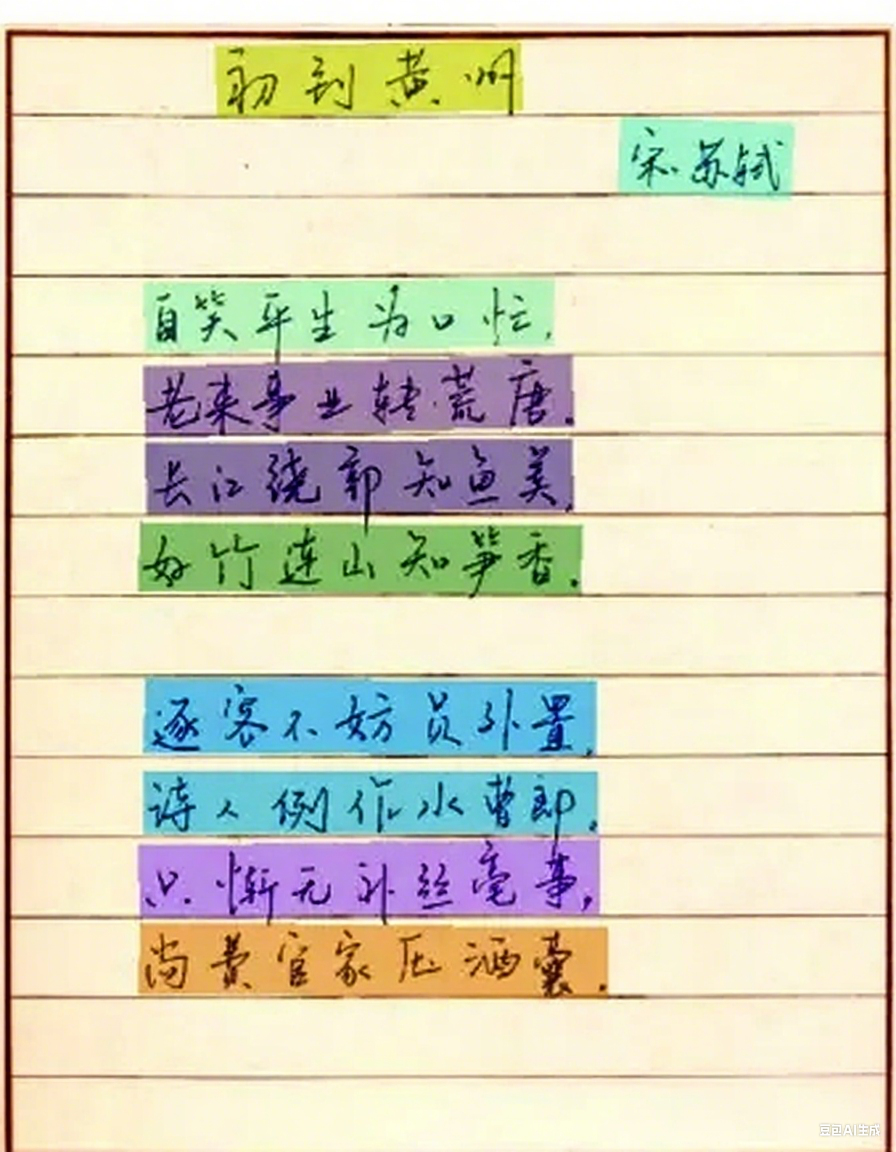 初到黄州
宋.苏轼
自笑平生为口忙,
老来事业转荒唐.
长江绕郭知鱼美,
好竹连山知笋香.
逐客不妨员外置,
诗人例作水曹郎.
只惭无补丝毫事,
尚费官家压酒囊.
豆包AI生成